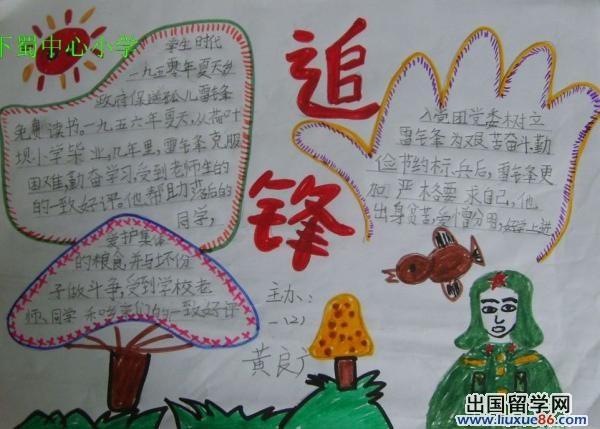 下蜀中心小学
学生时代
一九五零年夏天乡
政府保送孤儿雷锋
免费读书。一九五六年夏天,从荷叶
坝小学毕业,几年里,雷锋克服
困难,勤奋学习,受到老师生的
的一致好评。他帮助落后的
同学,
爱护集体
的粮食,并与坏份
子做斗争,受到学校老
师、同学和咗来们的一致好评
追
锋
入党团党委树立
雷锋为艰苦奋斗,勤
俭书约标兵后,雷锋更
加严格要求自己,他
出身贫苦,爱憎分明,好学上进
主办:
一(2)
黄良
出国留学网
www.liuxue86.com